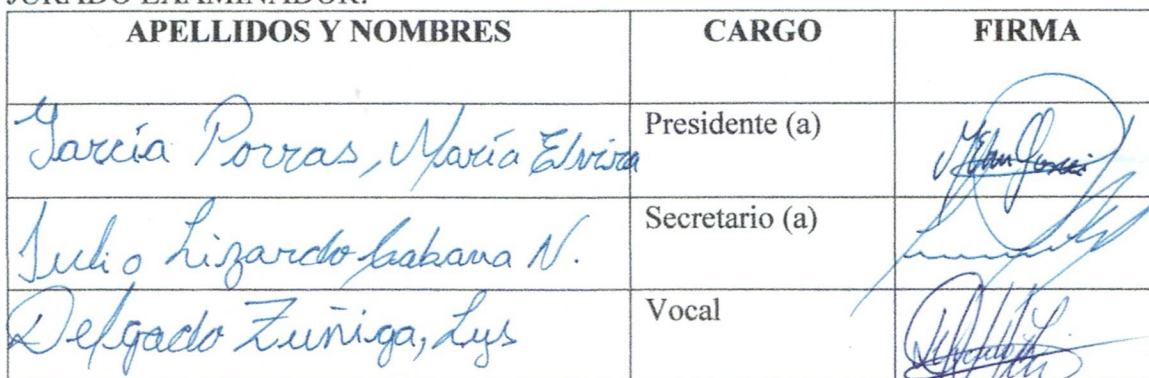 JURADO EXAMINADOR:
APELLIDOS Y NOMBRES CARGO FIRMA
García Porras, María Elvira Presidente (a)
Julio Lizardo Cabana N. Secretario (a)
Delgado Zuñiga, Lys Vocal